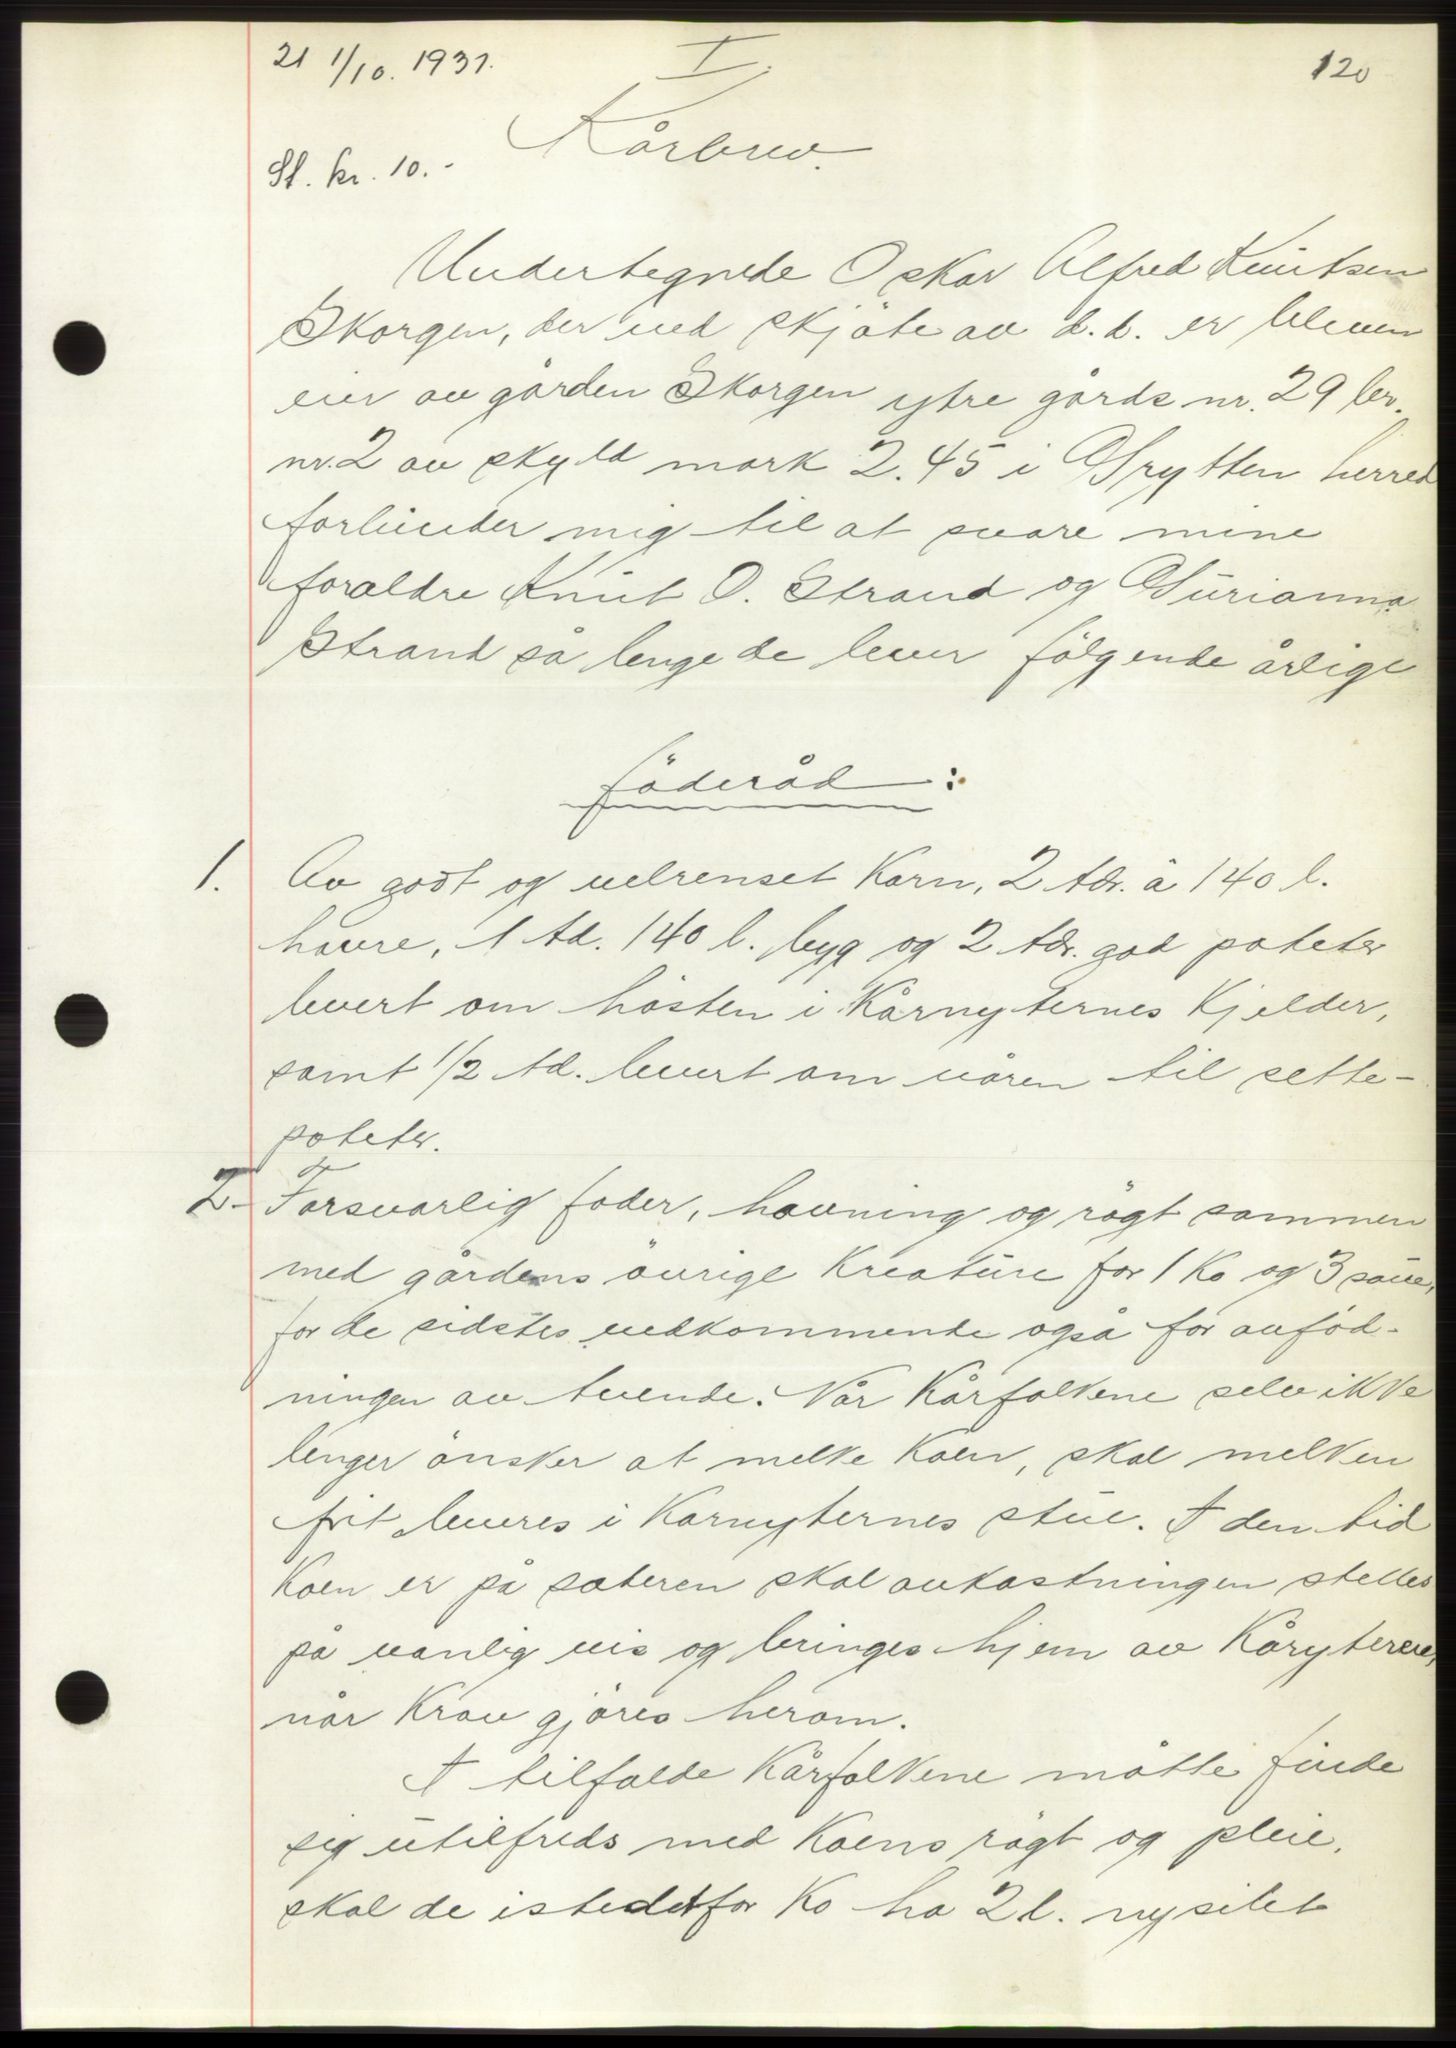 21 1/10. 1931.
I.
120
Kårbrev.
St. kr. 10.-
Undertegnede Oskar Alfred Knutsen
Skorgen, der ved skjöte av d.d. er bleven
eier av gården Skorgen ytre gårds nr. 29 br.
nr. 2 av skyld mark 2.45 i Grytten herred
forbinder mig til at svare mine
foraldre Knut O. Strand og Gurianna
Strand så lenge de lever fölgende årlige
föderåd:
1. Av godt og velrenset Korn, 2 tdr. à 140 l.
havre, 1 td. 140 l. byg og 2 tdr. god poteter
levert om hösten i Kårnyternes Kjelder,
samt 1/2 td. levert om våren til sette-
poteter.
2. Forsvarlig foder, havning og rögt sammen
med gårdens övrige Kreature for 1 Ko og 3 saue,
for de sidstes vedkommende også for avföd-
ningen av tvende. Når Kårfolkene selv ikke
lenger önsker at melke Koen, skal melken
frit leveres i Karnyternes stue. I den tid
Koen er på sæteren skal avkastningen stelles
på vanlig vis og bringes hjem av Kåryteren,
når Krav gjöres herom.
I tilfalde Kårfolkene måtte finde
sig utilfreds med Koens rögt og pleie,
skal de istedetfor Ko ha 2 l. nysilet